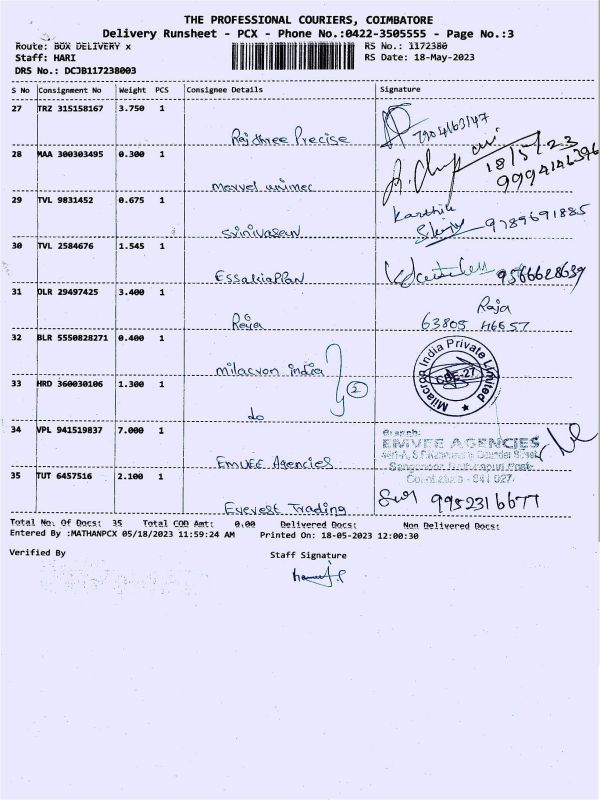 THE PROFESSIONAL COURIERS, COIMBATORE
Delivery Runsheet - PCX - Phone No.:0422-3505555 - Page No.:3
Route: BOX DELIVERY x
RS No.: 1172380
Staff: HARI
RS Date: 18-May-2023
DRS No.: DCJB117238003
S No Consignment No Weight PCS Consignee Details Signature
27 TRZ 315158167 3.750 1
Rajshree Precise 7904163147
28 MAA 300303495 0.300 1
18/5/23
Marvel unimec 9994146396
29 TVL 9831452 0.675 1
Karthik
Srinivasan 9789691885
30 TVL 2584676 1.545 1
9566628639
31 DLR 29497425 3.400 1
Raja
Raja 63805 46657
32 BLR 5550828271 0.400 1
Milacron India Private Limited
CBE-27
milacron india
2
33 HRD 360030106 1.300 1
do
34 VPL 941519837 7.000 1
Branch:
EMVEE AGENCIES
EMVEE Agencies
35 TUT 6457516 2.100 1
Everest Trading 9952316677
Total No. Of Docs: 35 Total COD Amt: 0.00 Delivered Docs: Non Delivered Docs:
Entered By :MATHANPCX 05/18/2023 11:59:24 AM Printed On: 18-05-2023 12:00:30
Verified By Staff Signature